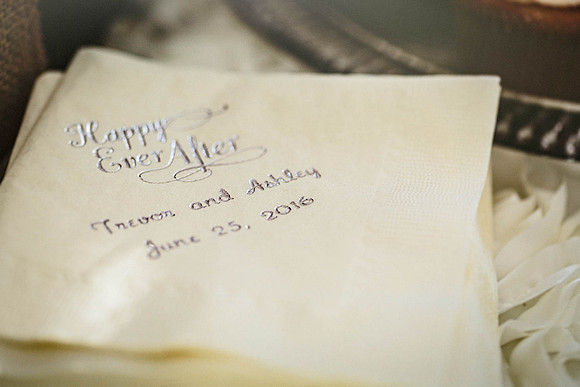 Happy
Ever After
Trevor and Ashley
June 25, 2016